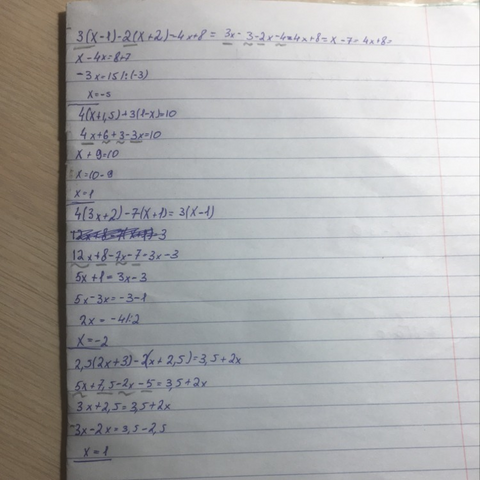 3(x-1)-2(x+2)-4x+8 = 3x-3-2x-4=4x+8=x-7=4x+8=
x-4x=8+7
-3x=15|:(-3)
x=-5
4(x+1,5)+3(1-x)=10
4x+6+3-3x=10
x+9=10
x=10-9
x=1
4(3x+2)-7(x+1)=3(x-1)
12x+8-7x-7=3x-3
5x+1=3x-3
5x-3x=-3-1
2x=-4|:2
x=-2
2,5(2x+3)-2(x+2,5)=3,5+2x
5x+7,5-2x-5=3,5+2x
3x+2,5=3,5+2x
3x-2x=3,5-2,5
x=1